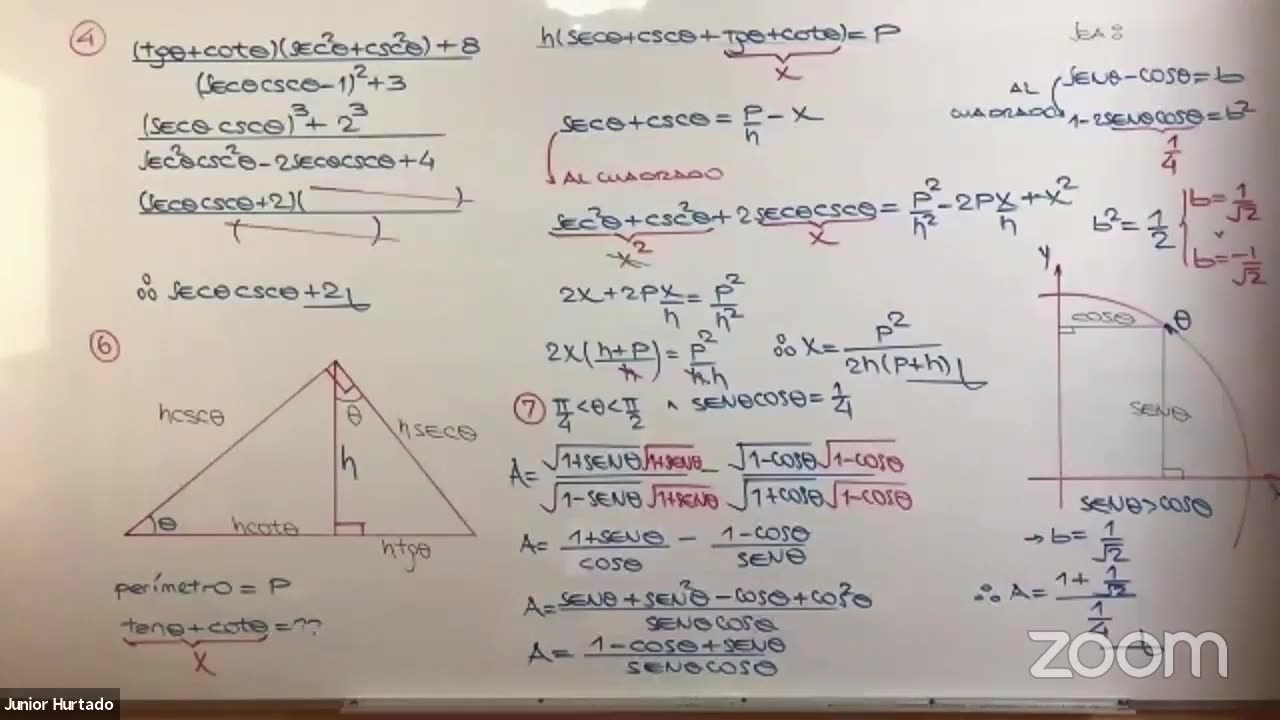 4
(tgθ+cotθ)(sec²θ+csc²θ)+8
(secθcscθ-1)²+3
(secθ cscθ)³+2³
sec²θcsc²θ-2secθcscθ+4
(secθcscθ+2)( )
( )
∴ secθcscθ+2
6
hcscθ
θ
hsecθ
h
θ
hcotθ
htgθ
perímetro = P
tanθ+cotθ=??
x
h(secθ+cscθ+tgθ+cotθ)=P
x
secθ+cscθ = P/h - x
AL CUADRADO
sec²θ+csc²θ+2secθcscθ = P²/h² - 2Px/h + x²
x² x
2x+2Px/h = P²/h²
2x(h+P/h) = P²/h.h ∴ x = P²/2h(P+h)
7 π/4<θ<π/2 ∧ SENθCOSθ=1/4
A= √1+SENθ√1+SENθ/√1-SENθ√1+SENθ - √1-COSθ√1-COSθ/√1+COSθ√1-COSθ
A= 1+SENθ/COSθ - 1-COSθ/SENθ
A= SENθ+SEN²θ-COSθ+COS²θ/SENθCOSθ
A= 1-COSθ+SENθ/SENθCOSθ
SEA:
SENθ-COSθ=b
AL CUADRADO
1-2SENθCOSθ=b²
1/4
b²=1/2 b=1/√2
∨
b=-1/√2
Y
COSθ θ
SENθ
X
SENθ>COSθ
→b=1/√2
∴ A= 1+1/√2 / 1/4
zoom
Junior Hurtado